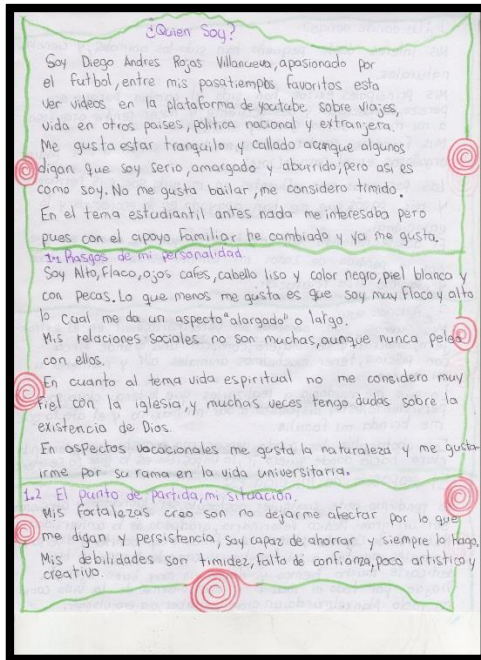 ¿Quien Soy?
Soy Diego Andres Rojas Villanueva, apasionado por
el futbol, entre mis pasatiempos favoritos esta
ver videos en la plataforma de youtube sobre viajes,
vida en otros paises, politica nacional y extranjera.
Me gusta estar tranquilo y callado aunque algunos
digan que soy serio, amargado y aburrido; pero asi es
como soy. No me gusta bailar, me considero timido.
En el tema estudiantil antes nada me interesaba pero
pues con el apoyo familiar he cambiado y ya me gusta.
1.1 Rasgos de mi personalidad.
Soy Alto, Flaco, ojos cafes, cabello liso y color negro, piel blanca y
con pecas. Lo que menos me gusta es que soy muy Flaco y alto
lo cual me da un aspecto "alargado" o largo.
Mis relaciones sociales no son muchas, aunque nunca peleo
con ellos.
En cuanto al tema vida espiritual no me considero muy
fiel con la iglesia, y muchas veces tengo dudas sobre la
existencia de Dios.
En aspectos vocacionales me gusta la naturaleza y me gusta
irme por su rama en la vida universitaria.
1.2 El punto de partida, mi situación.
Mis fortalezas creo son no dejarme afectar por lo que
me digan y persistencia, soy capaz de ahorrar y siempre lo hago.
Mis debilidades son timidez, falta de confianza, poco artistico y
creativo.